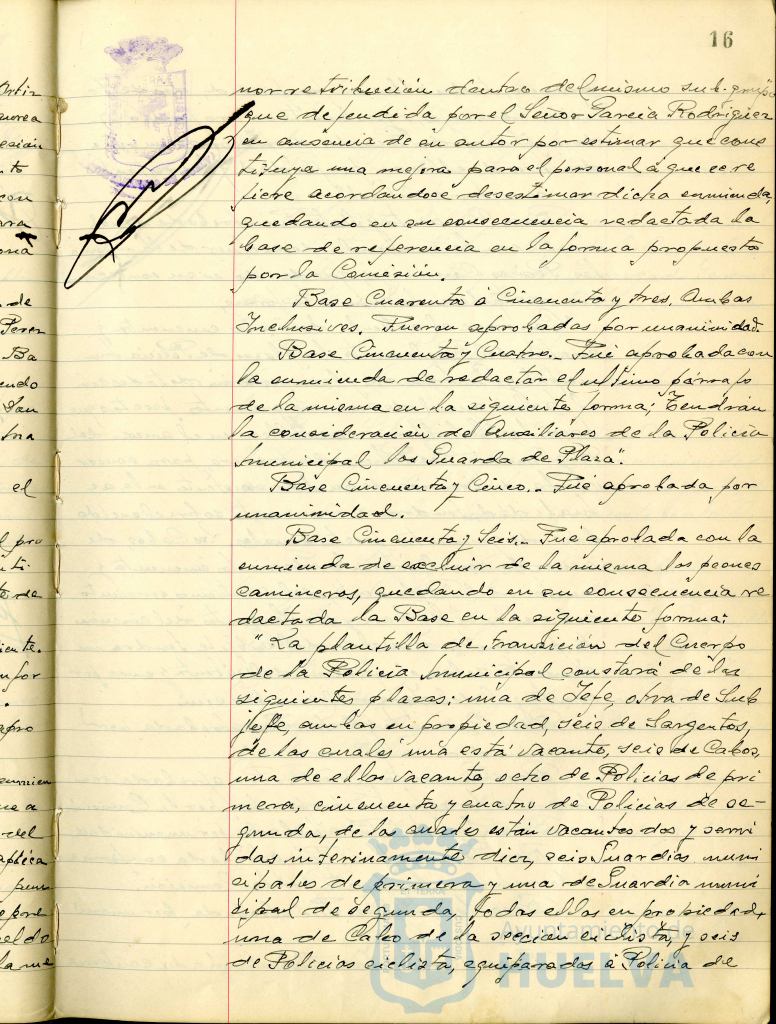 16
nor retribución dentro del mismo sub-grupo
que defendida por el Señor García Rodriguez
en ausencia de su autor por estimar que cons
tituya una mejora para el personal á que se re
fiere acordandose desestimar dicha enmienda,
quedando en su consecuencia redactada la
base de referencia en la forma propuesta
por la Comisión.
Base Cuarenta á Cincuenta y tres. Ambas
Inclusives. Fueron aprobadas por unanimidad.
Base Cincuenta y Cuatro.- Fué aprobada con
la enmienda de redactar el ultimo párrafo
de la misma en la siguiente forma; Tendrán
la consideración de Auxiliares de la Policia
Municipal los Guarda de Plaza".
Base Cincuenta y Cinco.- Fué aprobada por
unanimidad.
Base Cincuenta y Seis.- Fué aprobada con la
enmienda de excluir de la misma los peones
camineros, quedando en su consecuencia re
dactada la Base en la siguiente forma:
"La plantilla de transición del Cuerpo
de la Policia Municipal constará de las
siguientes plazas: una de Jefe, otra de Sub
jefe, ambas en propiedad, seis de Sargentos,
de las cuales una está vacante, seis de Cabos,
una de ellas vacante, ocho de Policias de pri
mera, cincuenta y cuatro de Policias de se-
gunda, de las cuales están vacantes dos y servi
das interinamente diez, seis Guardias muni
cipales de primera y una de Guardia muni
cipal de segunda, todas ellas en propiedad,
una de Cabo de la sección ciclista, y seis
de Policias ciclista, equiparados á Policia de
Ayuntamiento de
HUELVA